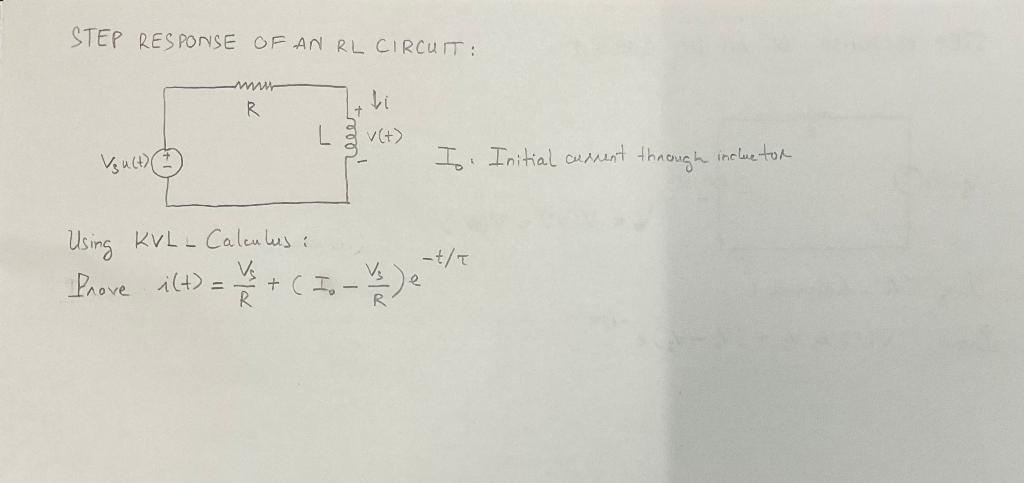 STEP RESPONSE OF AN RL CIRCUIT:
R
↓i
+
L
v(t)
Vs u(t)
+
-
-
I₀: Initial current through inductor
Using KVL - Calculus:
Prove i(t) = Vs/R + (I₀ - Vs/R)e^-t/τ